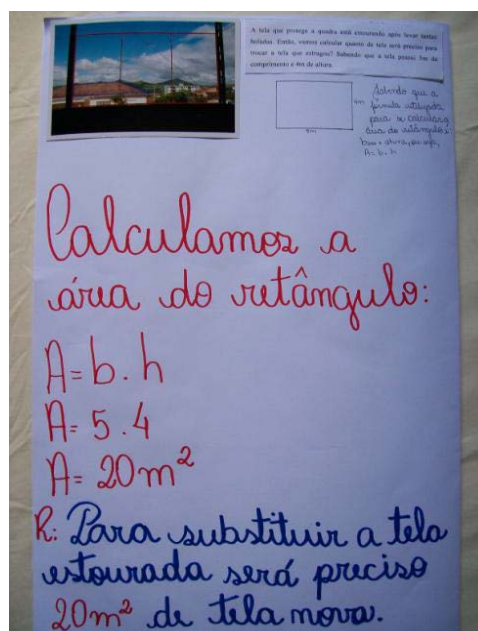 A tela que protege a quadra está estourando após levar tantas
boladas. Então, vamos calcular quanto de tela será preciso para
trocar a tela que estragou? Sabendo que a tela possui 5m de
comprimento e 4m de altura.
4m
5m
Sabendo que a
fórmula utilizada
para se calcular a
área do retângulo é
base x altura, ou seja,
A= b. h
Calculamos a
área do retângulo:
A= b. h
A= 5 . 4
A= 20m²
R: Para substituir a tela
estourada será preciso
20m² de tela nova.